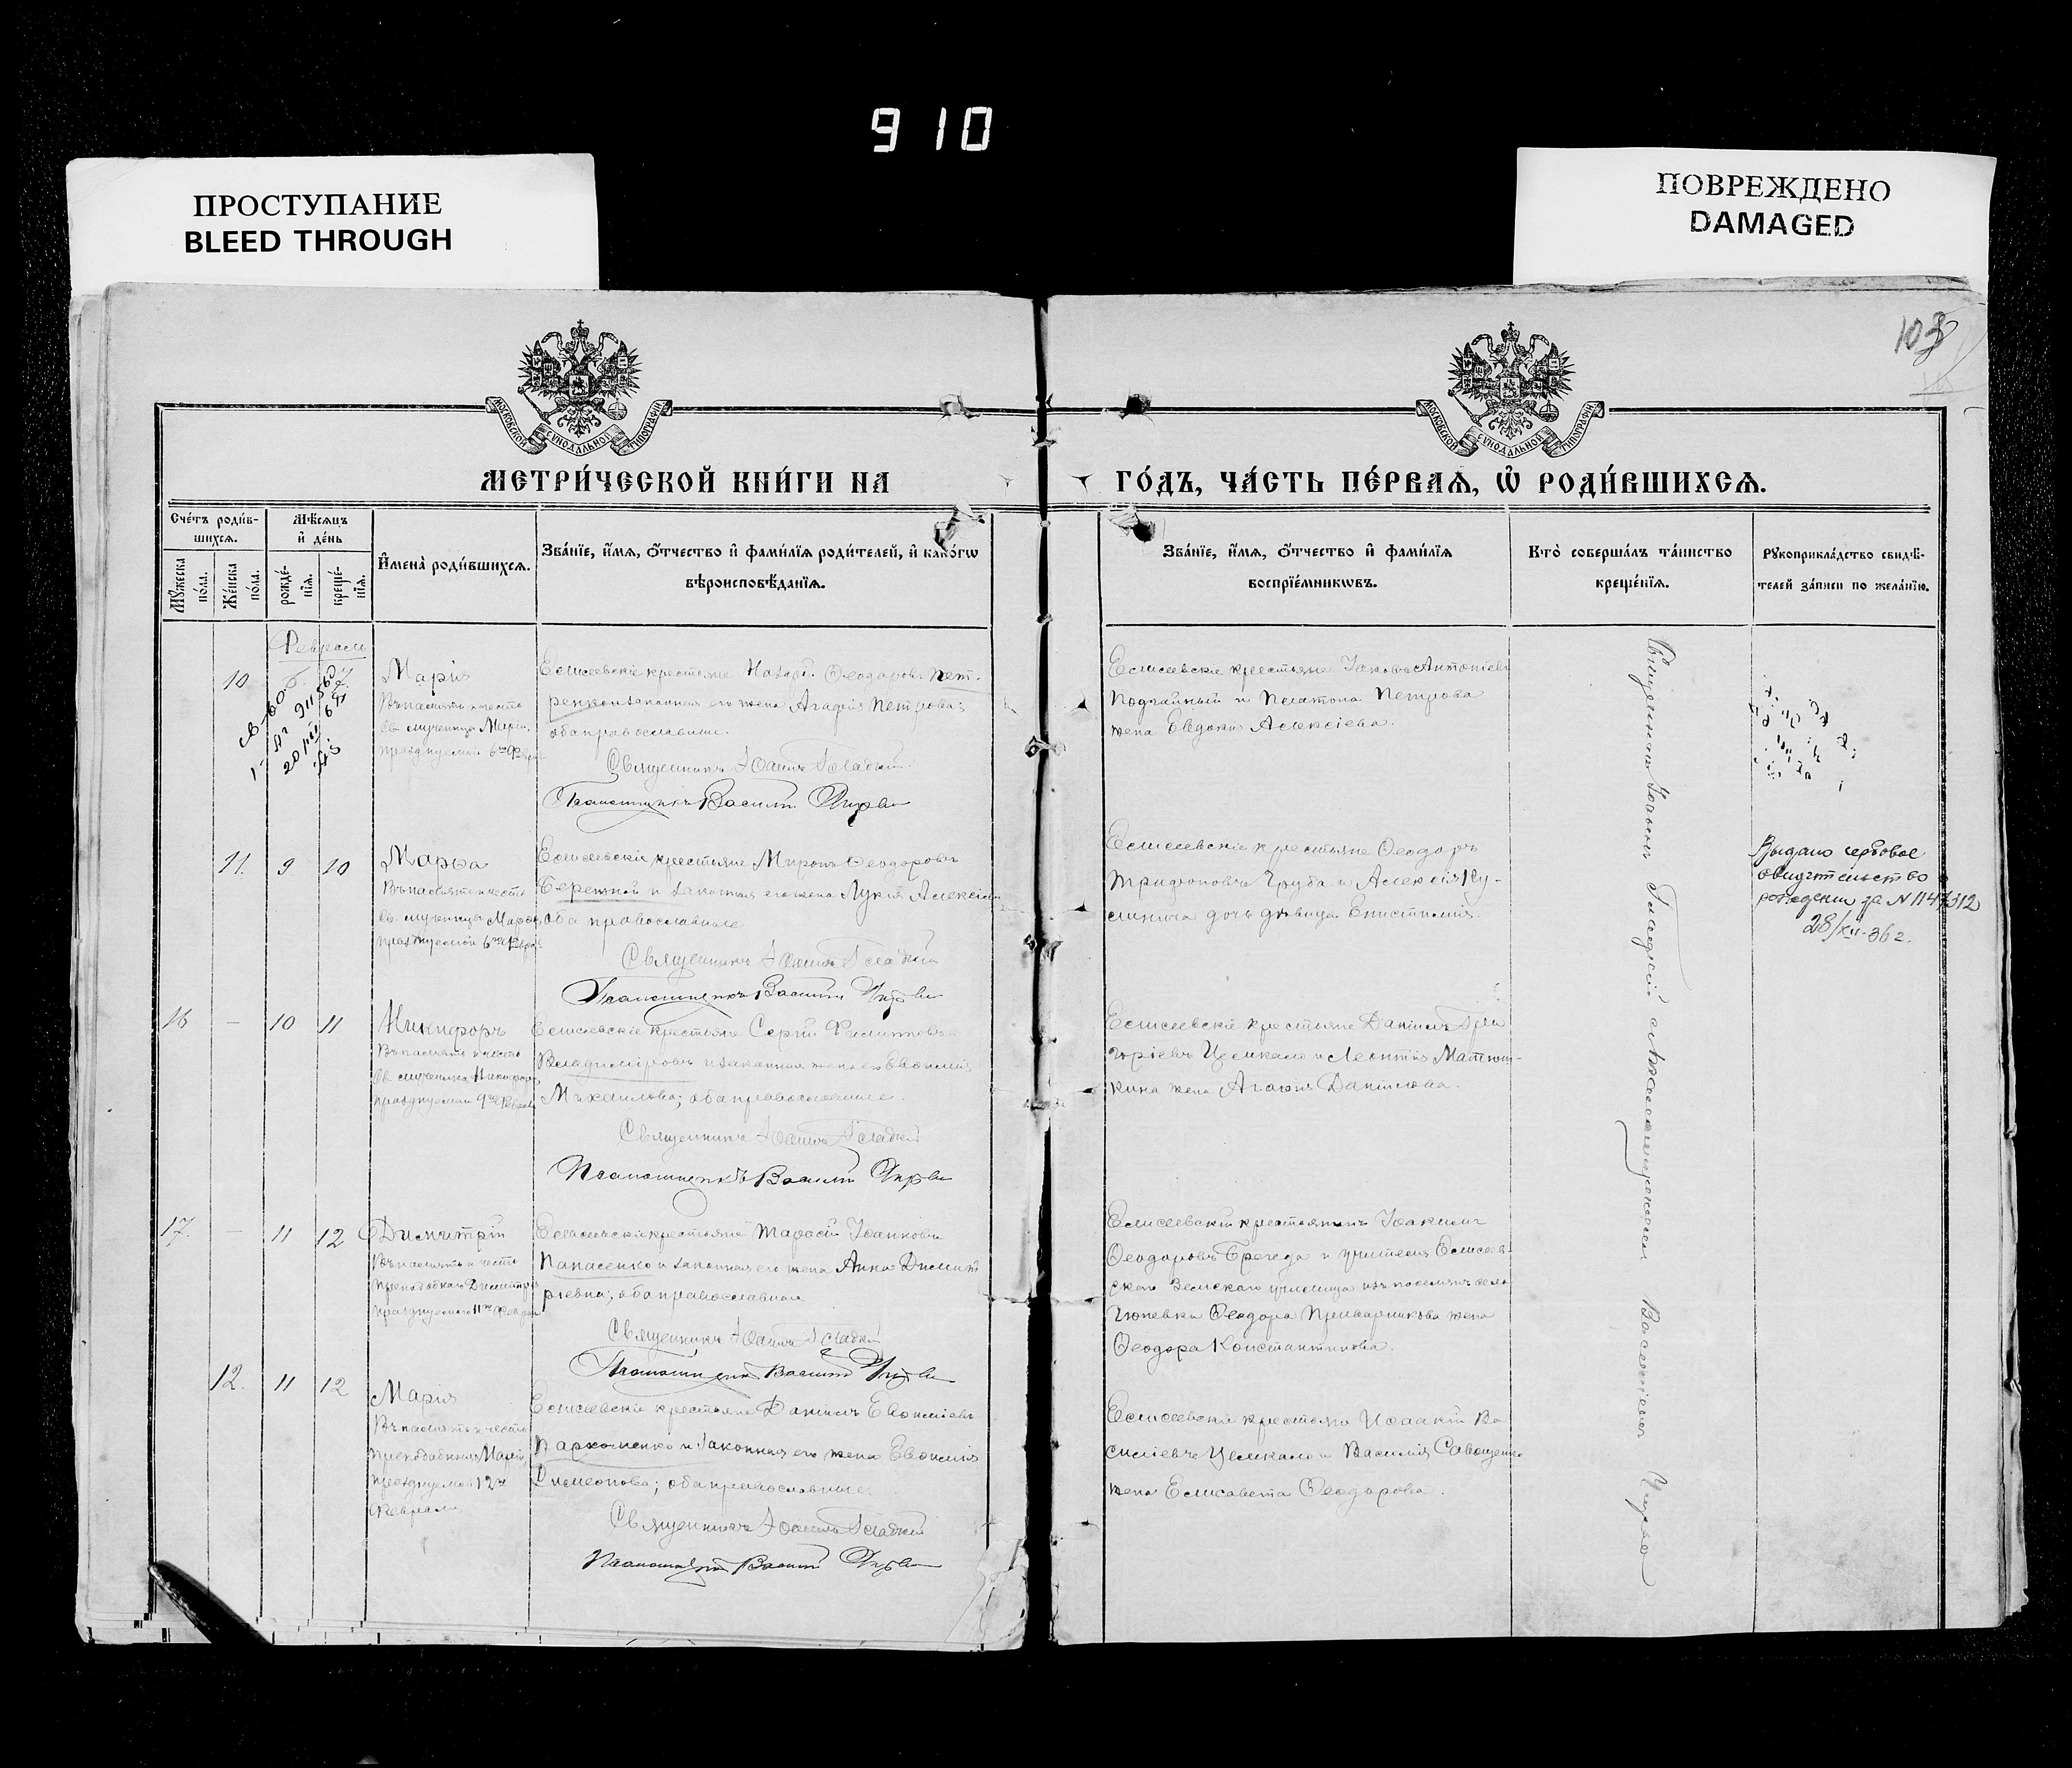 910
ПРОСТУПАНИЕ
BLEED THROUGH
ПОВРЕЖДЕНО
DAMAGED
103
МОСКОВСКОЙ СУНОДАЛЬНОЙ ТИПОГРАФІИ
МОСКОВСКОЙ СУНОДАЛЬНОЙ ТИПОГРАФІИ
МЕТРИ́ЧЕСКОЙ КНИ́ГИ НА
ГО́ДЪ, ЧА́СТЬ ПЕ́РВАѦ, Ѡ҆ РОДИ́ВШИХСѦ.
Сче́тъ роди́в-
шихсѧ.
Мѣ́сѧцъ
и҆ де́нь
Мꙋ́жеска по́ла.
Же́нска по́ла.
рожде́-
нїѧ.
креще́-
нїѧ.
И҆мена̀ роди́вшихсѧ.
Зва́нїе, и҆́мѧ, ѻ҆́тчество и҆ фами́лїѧ роди́телей, и҆ како́гѡ
вѣроисповѣ́данїѧ.
Зва́нїе, и҆́мѧ, ѻ҆́тчество и҆ фами́лїѧ
воспрїе́мникѡвъ.
Кто̀ соверша́лъ та́инство
креще́нїѧ.
Рꙋкоприкла́дство свидѣ́-
телей за́писи по жела́нїю.
Февраль
10
6.
7.
Марія
Въ память и честь
св. мученицы Маріи,
празднуемой 6го Февр
Елисеевскіе крестьяне Назарій Ѳеодоровъ Пет-
ренко и законная его жена Агафія Петрова;
оба православные.
Священникъ Іоаннъ Гладкій
Псаломщикъ Василій
Елисеевскіе крестьяне Іаковъ Антоніевъ
и Платона Петрова
жена Евдокія Алексіева.
11.
9
10
Марѳа
Въ память и честь
св. мученицы Марѳы
празднуемой 6го Февраля
Елисеевскіе крестьяне Миронъ Ѳеодоровъ
Бережной и законная его жена Лукія Алексіева
оба православные
Священникъ Іоаннъ Гладкій
Псаломщикъ Василій
Елисеевскіе крестьяне Ѳеодоръ
Трифоновъ Груба и Алексія Ку-
дочь дѣвица Епистимія.
Выдано гербовое
свидетельство
рождении за N 1147312
28/XII-36 г.
16
—
10
11
Никифоръ
Въ память и честь
св. мученика Никифора
празднуемаго 9го Февраля
Елисеевскіе крестьяне Сергій Филипповъ
Владиміровъ и законная жена его Евѳимія
Михаилова; оба православные.
Священникъ Іоаннъ Гладкій
Псаломщикъ Василій
Елисеевскіе крестьяне Даніилъ Гри
горіевъ Цемкало и Леонтія Матюш-
кина жена Агафія Даниілова.
17.
—
11
12
Димитрій
Въ память и честь
преподобнаго Димитрія
празднуемаго 11го Февраля
Елисеевскіе крестьяне Тарасій Іоанновъ
Панасенко и законная его жена Анна Димит
ріевна; оба православные
Священникъ Іоаннъ Гладкій
Псаломщикъ Василій
Елисеевскій крестьянинъ Іоакимъ
Ѳеодоровъ и учителя Елисеев
скаго Земскаго училища изъ поселянъ села
Ѳеодора жена
Ѳеодора Константинова.
12.
11
12
Марія
Въ память и честь
преподобныя Маріи
празднуемой 12го
Февраля
Елисеевскіе крестьяне Даніилъ Евѳиміевъ
Пархоменко и законная его жена Евѳимія
Симеонова; оба православные.
Священникъ Іоаннъ Гладкій
Псаломщикъ Василій
Елисеевскіе крестьяне Исаакій Ва
силіевъ Цемкало и Василія Савощенко
жена Елисавета Ѳеодорова.
Священникъ Іоаннъ Гладкій съ псаломщикомъ Василіемъ